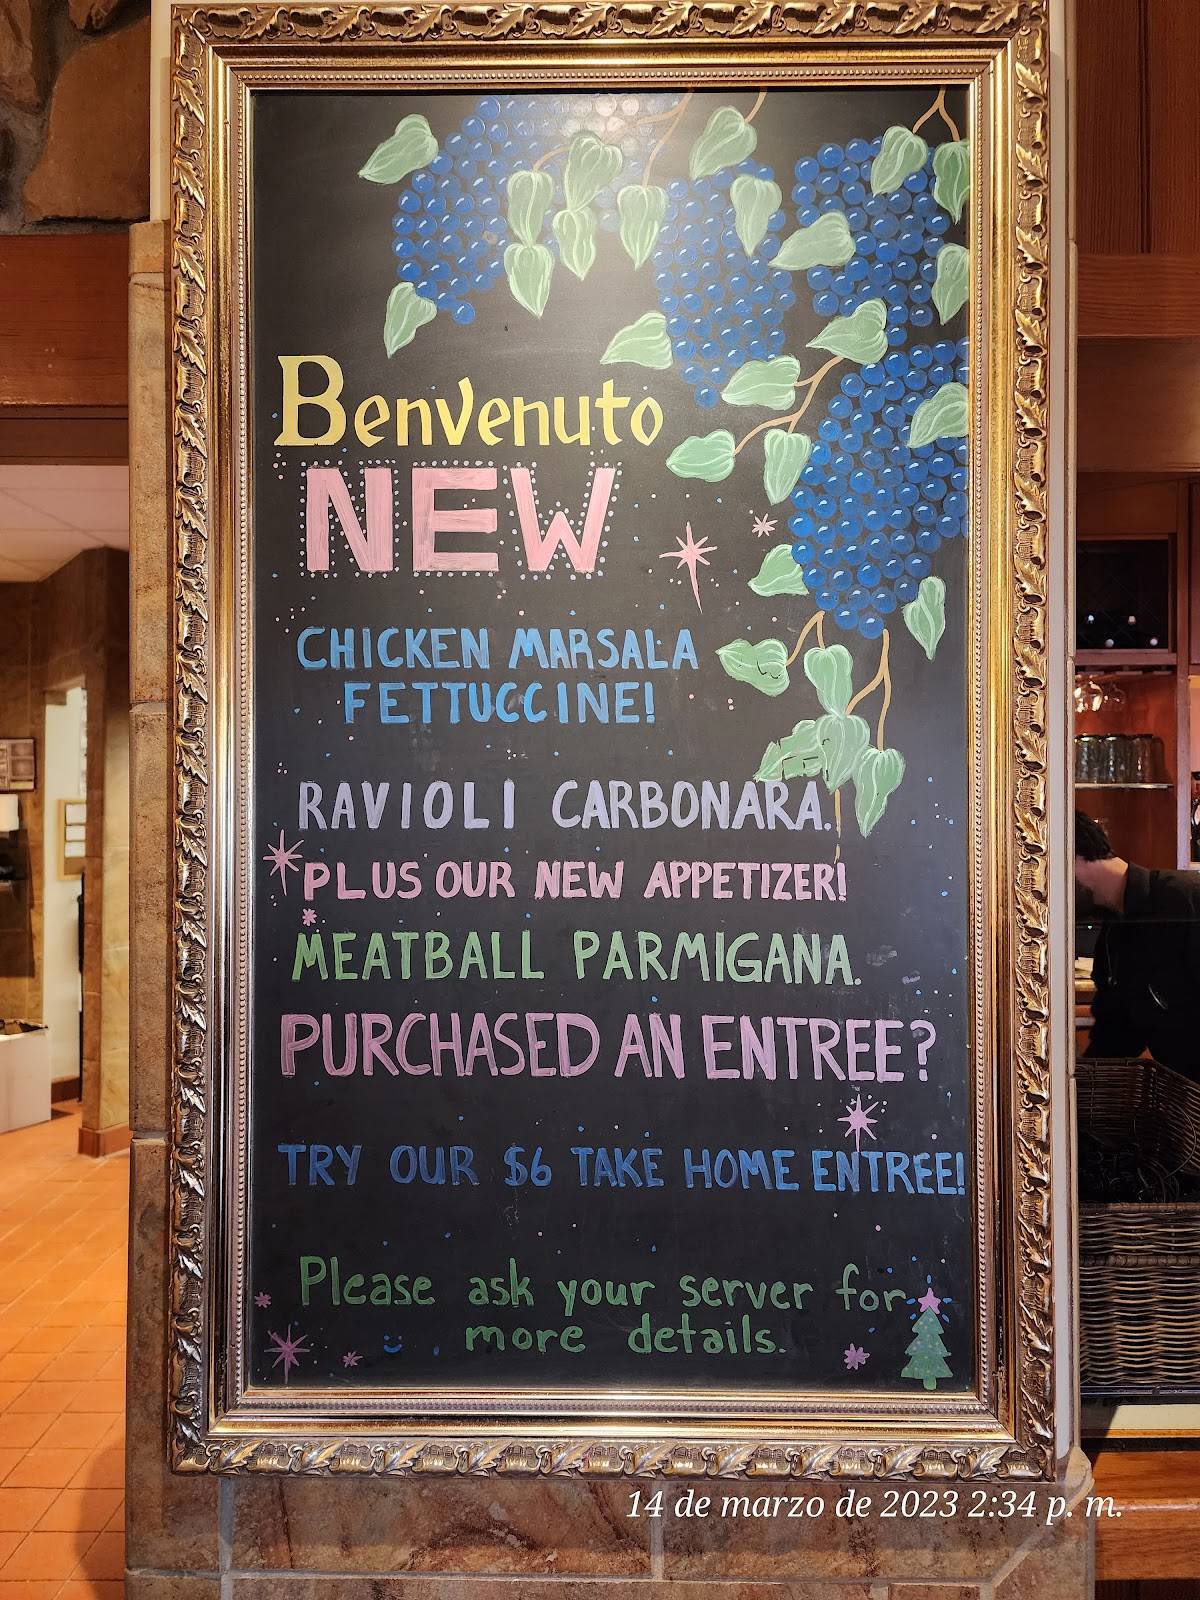 Benvenuto
NEW
CHICKEN MARSALA
FETTUCCINE!
RAVIOLI CARBONARA.
PLUS OUR NEW APPETIZER!
MEATBALL PARMIGANA.
PURCHASED AN ENTREE?
TRY OUR $6 TAKE HOME ENTREE!
Please ask your server for
more details.
14 de marzo de 2023 2:34 p. m.